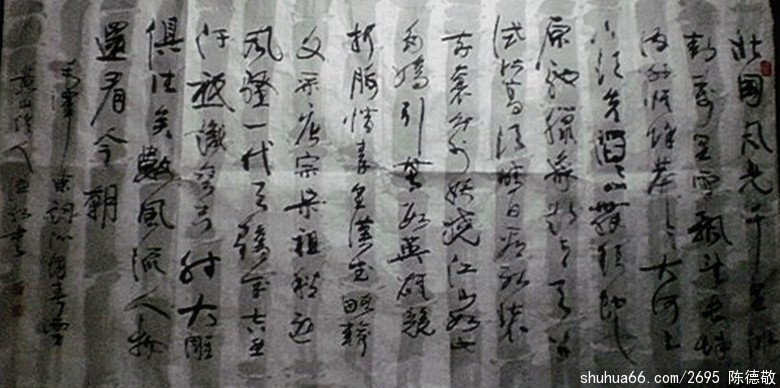 北國风光千里冰
封万里雪飘望长城
内外惟余莽々大河上
下顿失滔々山舞银蛇
原驰蜡象欲与天公
试比高须晴日看红装
素裹分外妖娆江山如此
多嬌引无数英雄競
折腰惜秦皇漢武略輸
文采唐宗宋祖稍逊
风骚一代天骄成吉思
汗祇識弯弓射大雕
俱往矣數風流人物
還看今朝
毛泽东词沁园春雪
人 书
shuhua66.com/2695 陈德敬